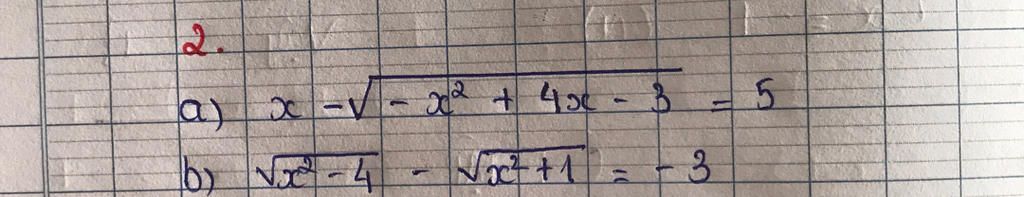 2.
a) x - √(-x² + 4x - 3) = 5
b) √(x² - 4) - √(x² + 1) = - 3